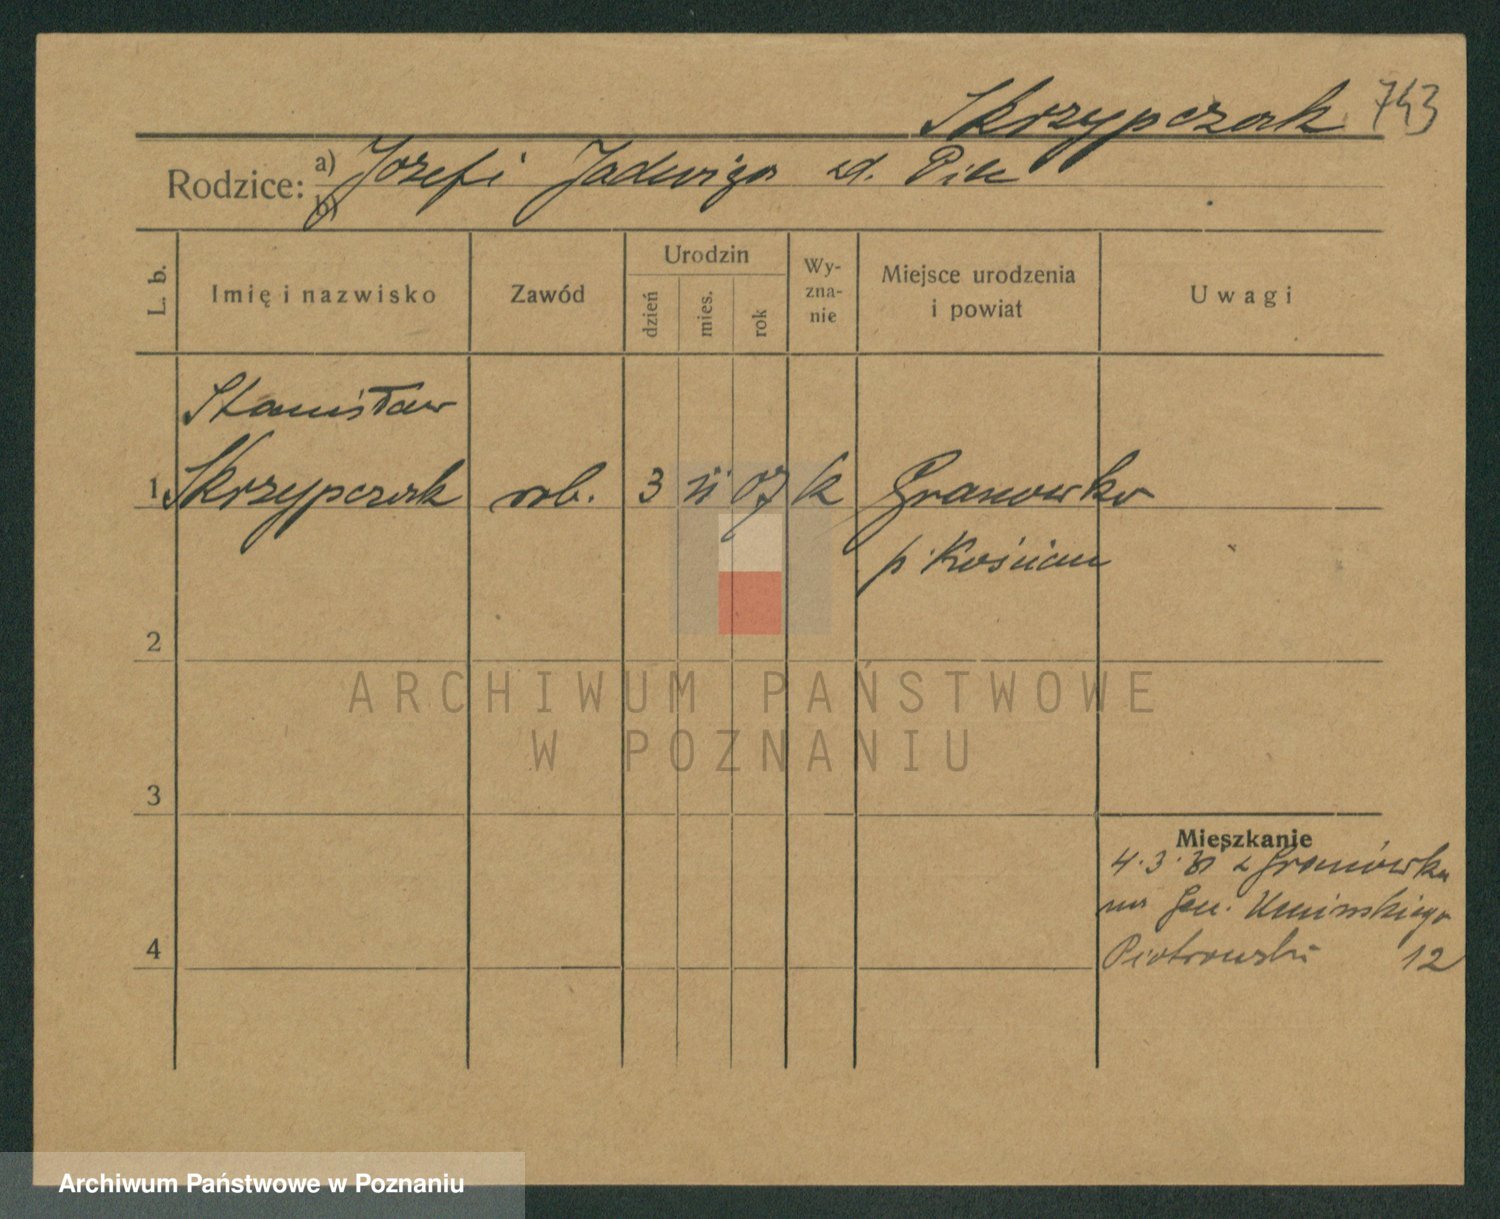 Skrzypczak 743
Rodzice: a) Józef i Jadwiga zd. Pik
b)
L. b. Imię i nazwisko Zawód Urodzin dzień mies. rok Wyznanie Miejsce urodzenia i powiat Uwagi
Stanisław
1 Skrzypczak rob. 3 07 k Granowko
p. Kościan
2
3
4
Mieszkanie
4.3. z Granówka
na Gen. Umińskiego
Piotrowski 12
ARCHIWUM PAŃSTWOWE
W POZNANIU
Archiwum Państwowe w Poznaniu